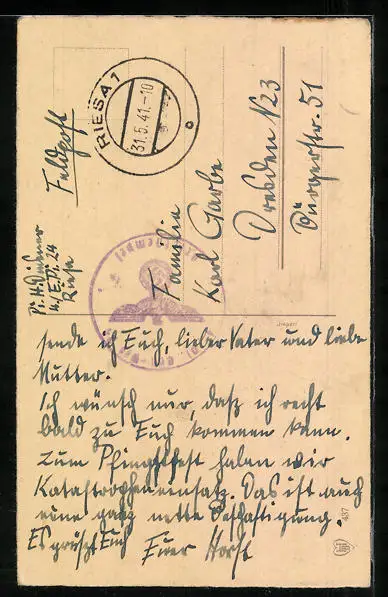 Feldpost
RIESA 1
31.5.41.-10
Familie
Karl Garbe
Dresden N23
Bürgerstr. 51
Pi. H.
4./E. Pi. 24
Riesa
sende ich Euch, lieber Vater und liebe
Mutter.
Ich wünsch nur, dasz ich recht
bald zu Euch kommen kann.
Zum Pfingstfest haben wir
Katastropheneinsatz. Das ist auch
eine ganz nette Beschäftigung.
Es grüszt Euch
Euer Horst
437